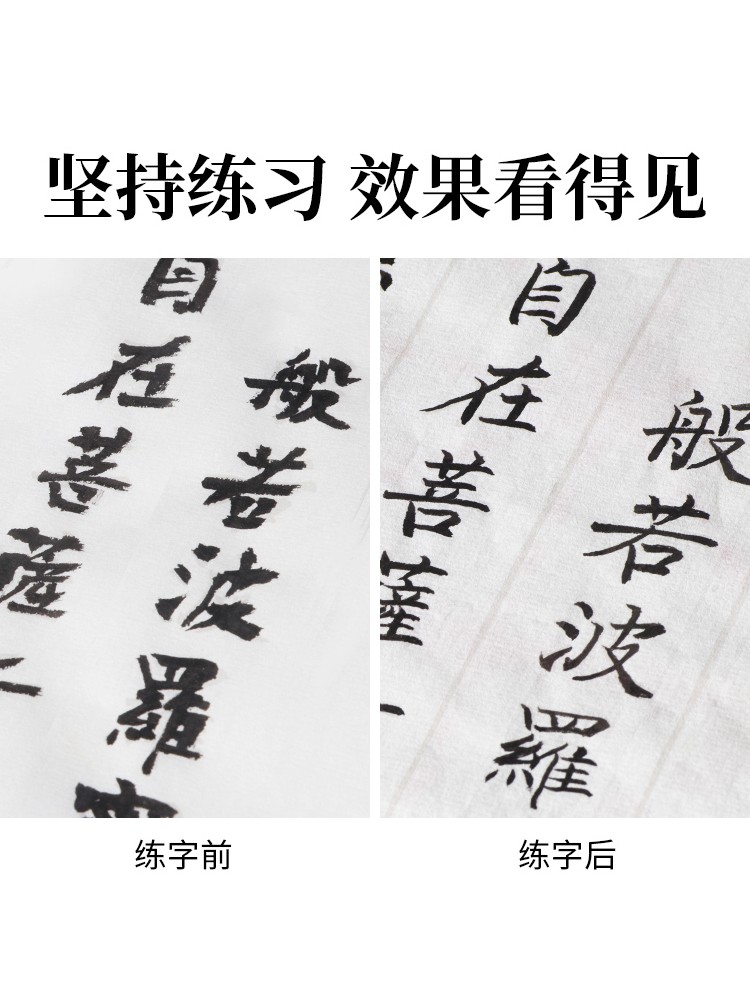 坚持练习 效果看得见
般若波羅
自在菩薩
自在菩薩
般若波羅
练字前
练字后